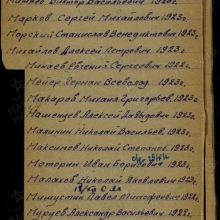 Виктор Васильевич 1923г.
Марков Сергей Михайлович 1923г.
Морский Станислав Венедиктович 1923г.
Михайлов Алексей Петрович 1923г.
Минаев Евгений Сергеевич 1922г.
Мейер Герман Всеволод. 1923г.
Макаров Михаил Григорьев. 1923г.
Алексей Давыдович 1923г.
Малинин Николай Васильев. 1923г.
Максимов Николай Степанов. 1923г.
Моторин Иван Борисович 1923г.
Малахов Николай Яковлевич 1923г.
Мишустин Павел Тимофеевич 1922г.
Муруев Александр Васильевич 1922г.